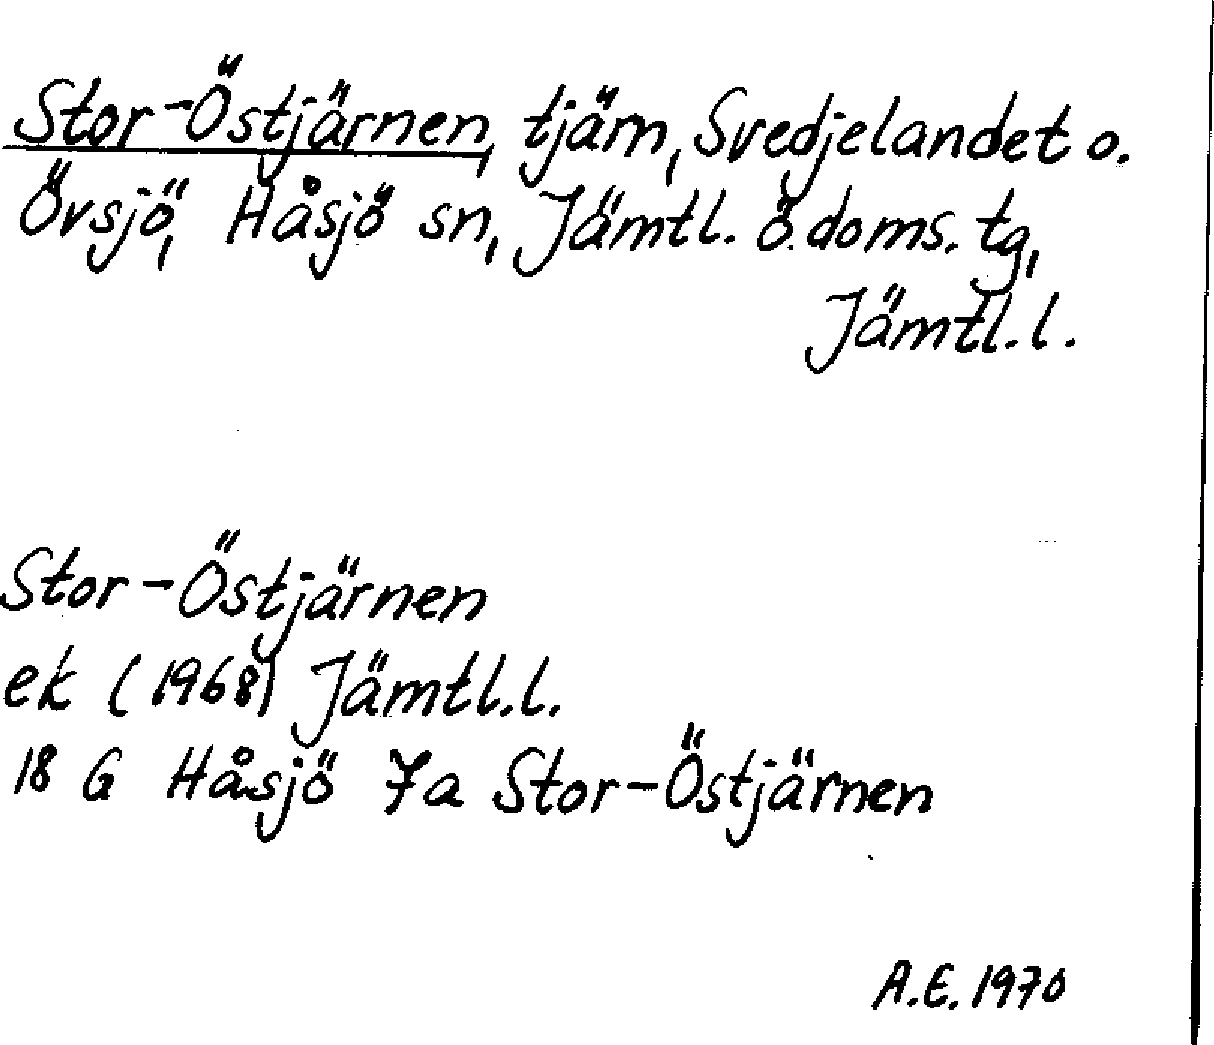 Stor-Östjärnen, tjärn, Svedjelandet o.
Övsjö, Håsjö sn, Jämtl. ö. doms. tg,
Jämtl. l.
Stor-Östjärnen
ek (1968) Jämtl. l.
18 G Håsjö 7a Stor-Östjärnen
A.E. 1970